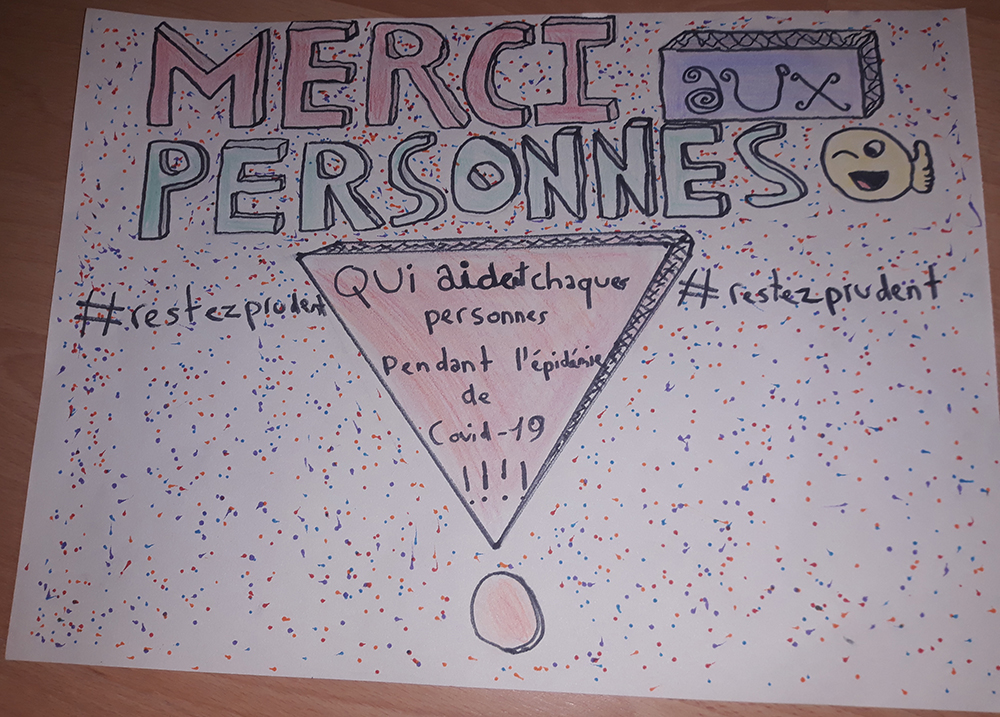 MERCI aux
PERSONNES
QUi aident chaques
personnes
pendant l'épidémie
de
Covid-19
!!!!
#restezprudent
#restezprudent